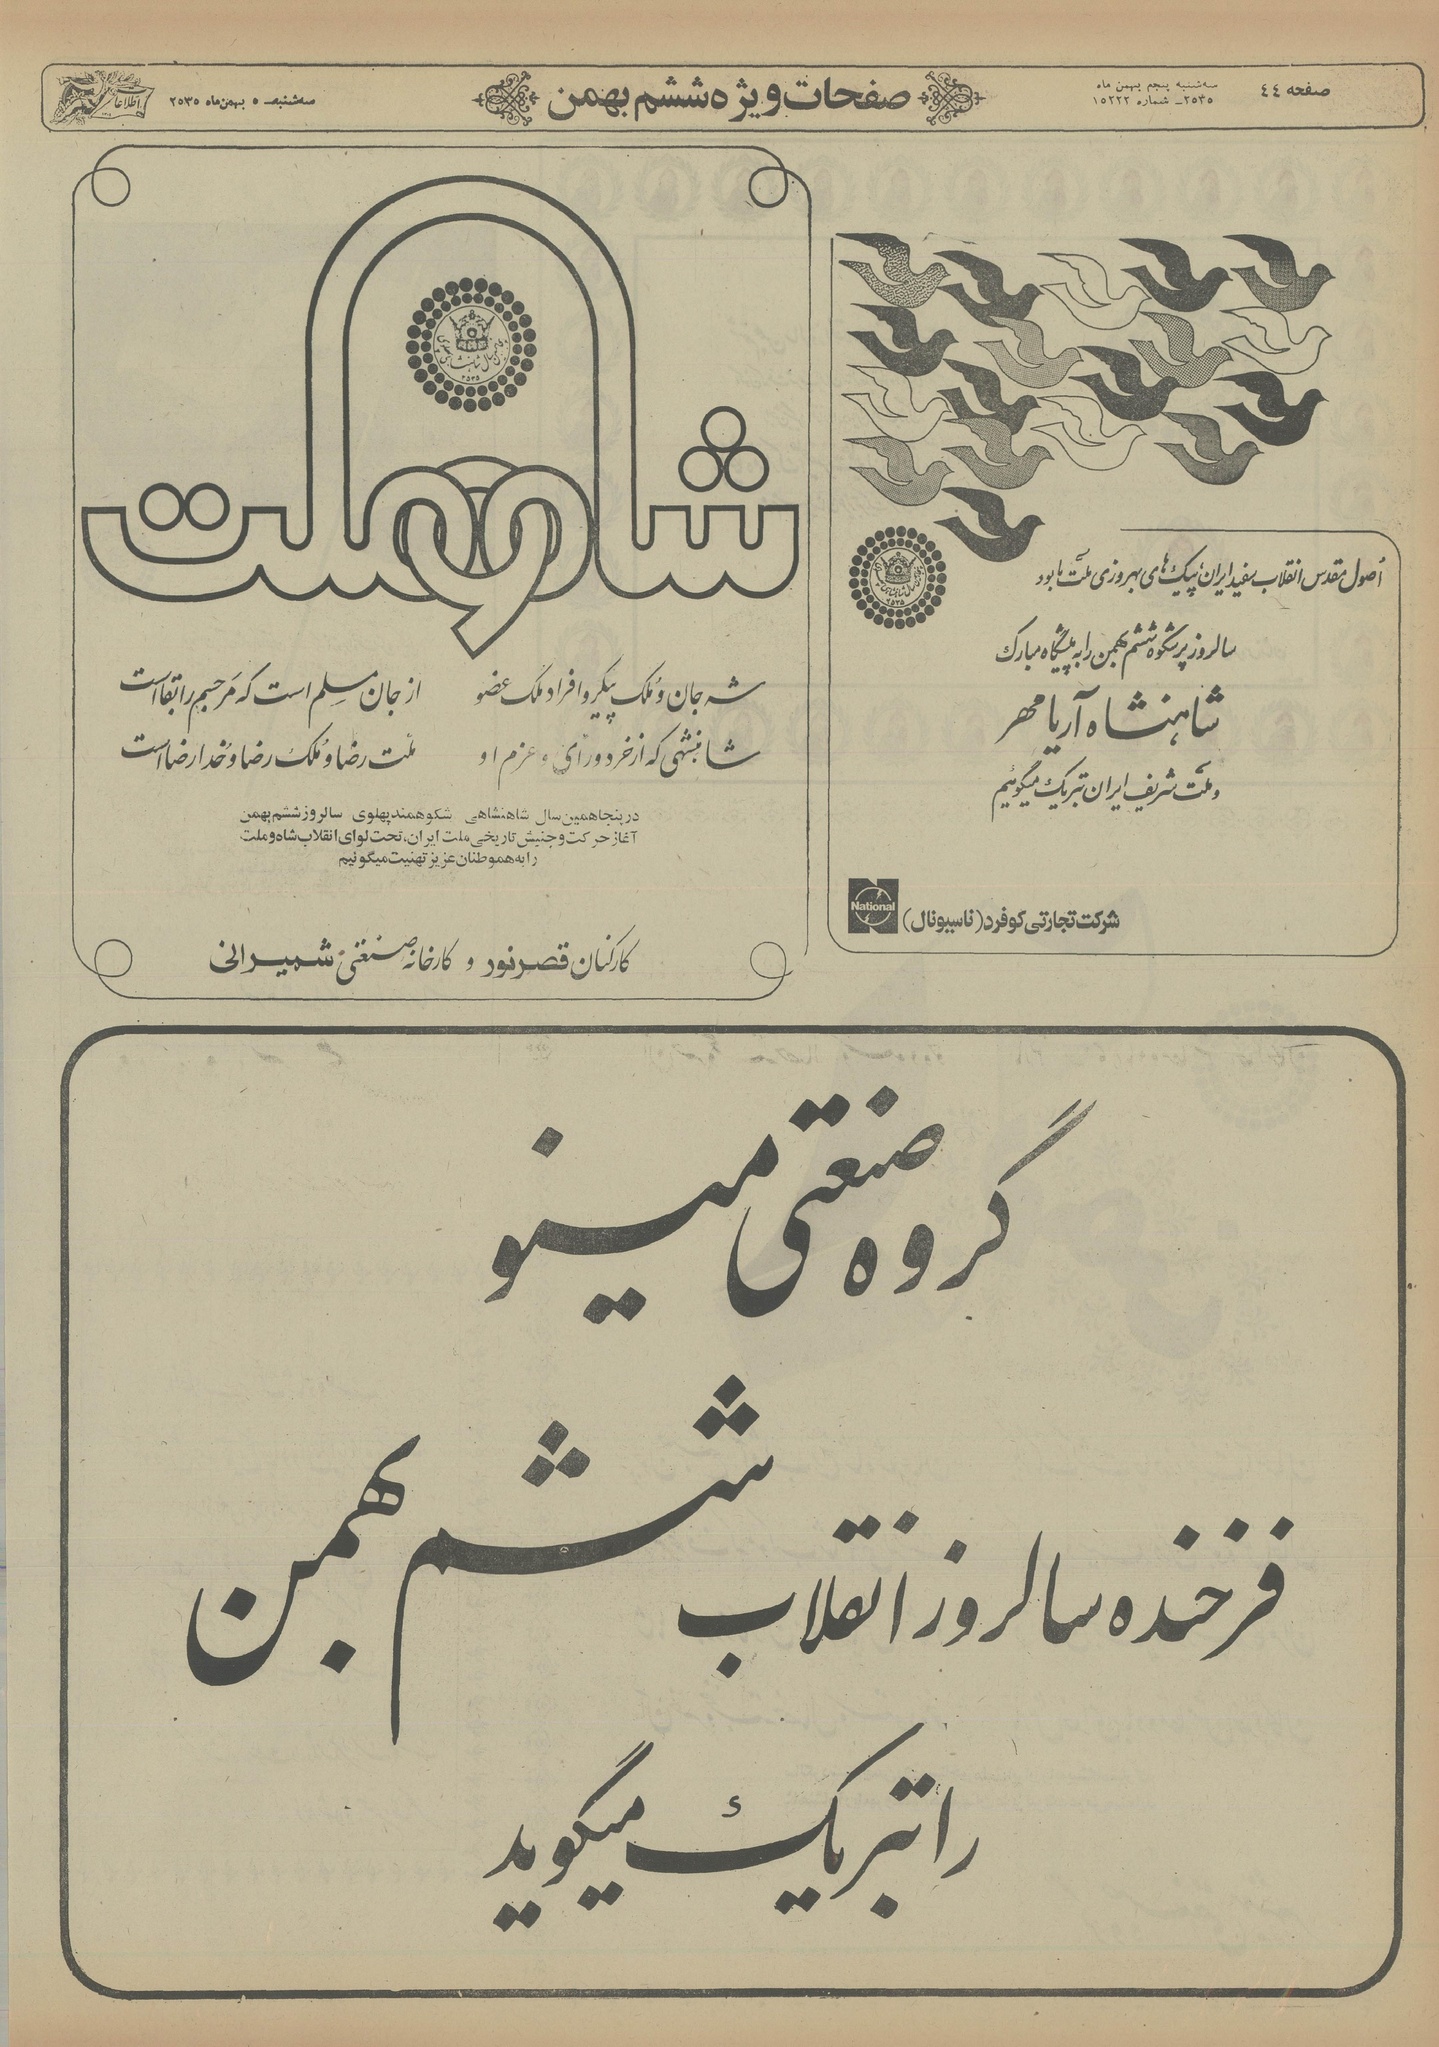 صفحه ٤٤
سه‌شنبه پنجم بهمن ماه
۲۵۳۵ـ شماره ۱۵۲۲۲
صفحات ویژه ششم بهمن
سه‌شنبه ـ ۵ بهمن ماه ۲۵۳۵
اطلاعات
اُصول مقدس انقلاب سفید ایران، پیک‌های بهروزی ملت ما بود
سالروز پرشکوه ششم بهمن را به پیشگاه مبارک
شاهنشاه آریامهر
و ملّت شریف ایران تبریک میگوئیم
National
شرکت تجارتی کوفرد (ناسیونال)
۲۵۳۵
شاه و ملت
شه جان و مُلک پیکر و افراد ملک عضو
از جان مسلم است که مر جسم را بقا است
شاهنشهی که از خرد و رای و عزم او
ملّت رضا و مُلک رضا و خدا رضا است
در پنجاهمین سال شاهنشاهی شکوهمند پهلوی سالروز ششم بهمن
آغاز حرکت و جنبش تاریخی ملت ایران، تحت لوای انقلاب شاه و ملت
را به هموطنان عزیز تهنیت میگوئیم
کارکنان قصر نور و کارخانه صنعتی شمیرانی
گروه صنعتی مینو
فرخنده سالروز انقلاب ششم بهمن
را تبریک میگوید